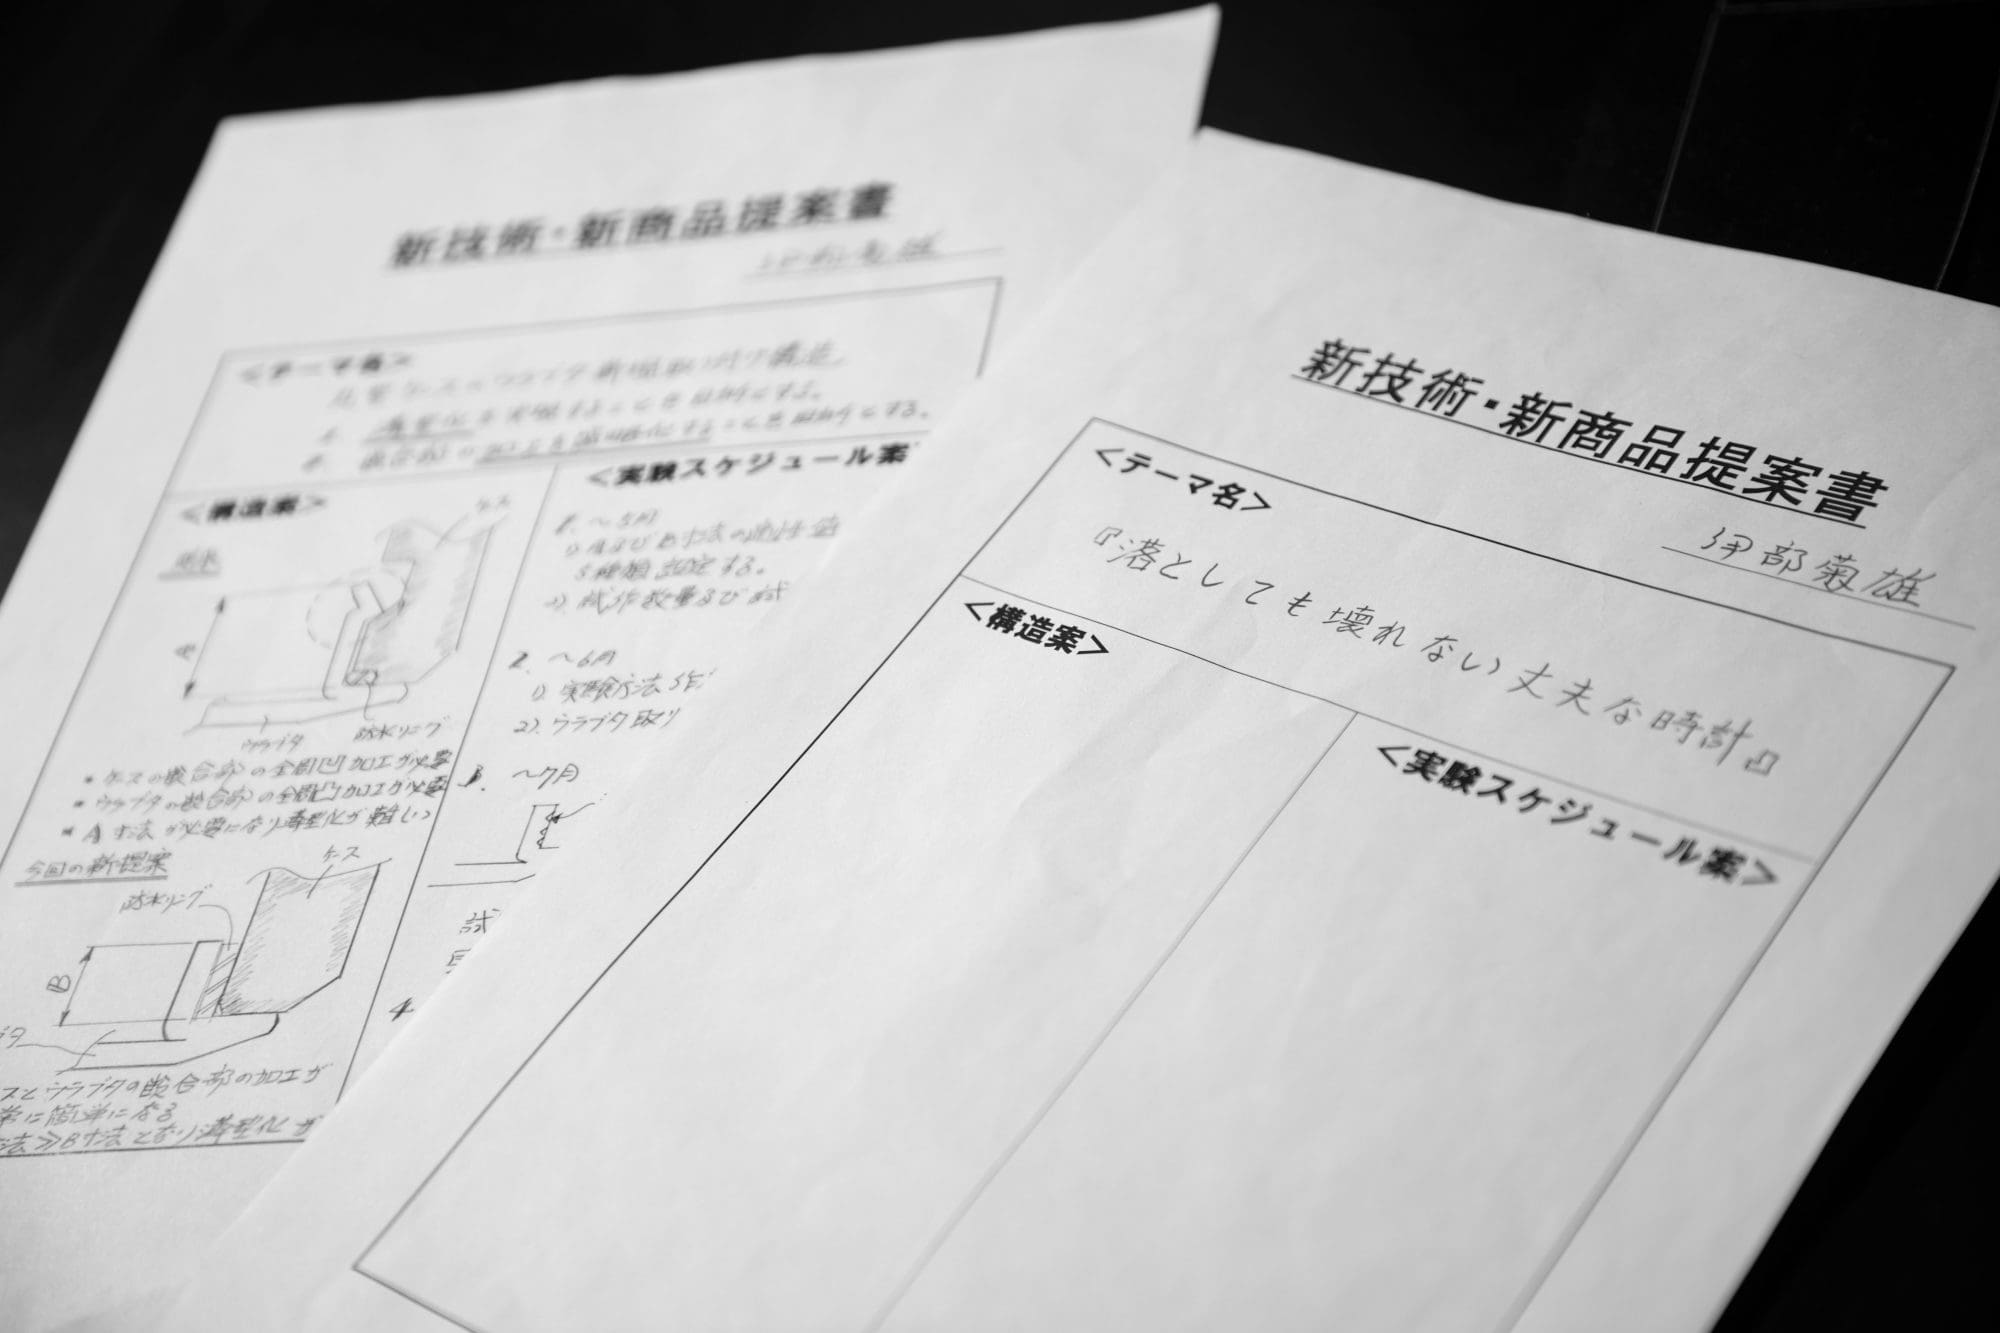 新技術・新商品提案書
<テーマ名>
<実験スケジュール案
<構造案>
ケース
1. ～5月
5種類設定する。
2. ～6月
1). 実験方法
2). ウラブタ取り
A
ウラブタ
防水リング
• ケースの嵌合部の全周凹加工が必要
• ウラブタの嵌合部の全周凸加工が必要
• A寸法が必要になり薄型化が難しい
3. ～7月
今回の新提案
ケース
防水リング
B
試
4
スとウラブタの嵌合部の加工が
常に簡単になる
法≫B寸法となり薄型化が
新技術・新商品提案書
伊部菊雄
<テーマ名>
『落としても壊れない丈夫な時計』
<構造案>
<実験スケジュール案>